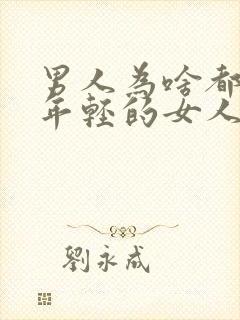 男人為啥都
年輕的女人
劉永成